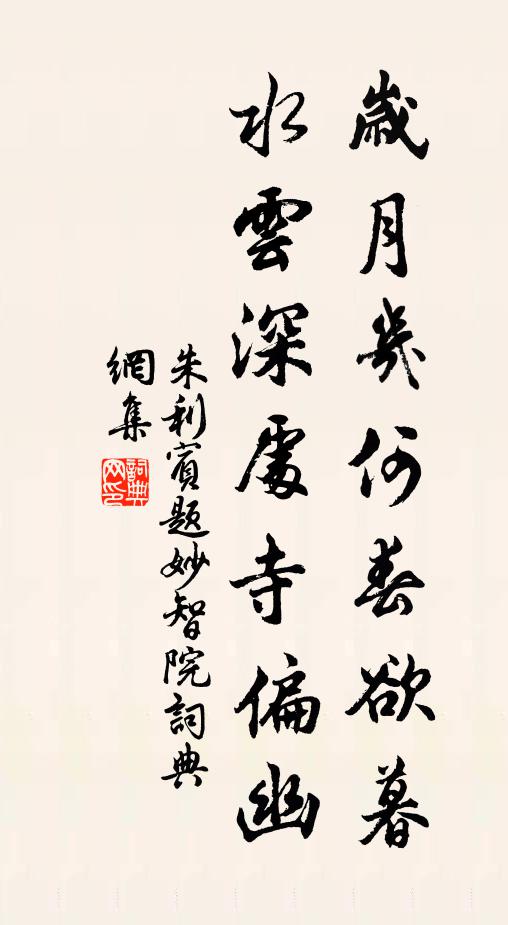 歲月幾何春欲暮
水雲深處寺偏幽
朱利賓題妙智院詞典
網集
詞典
网印